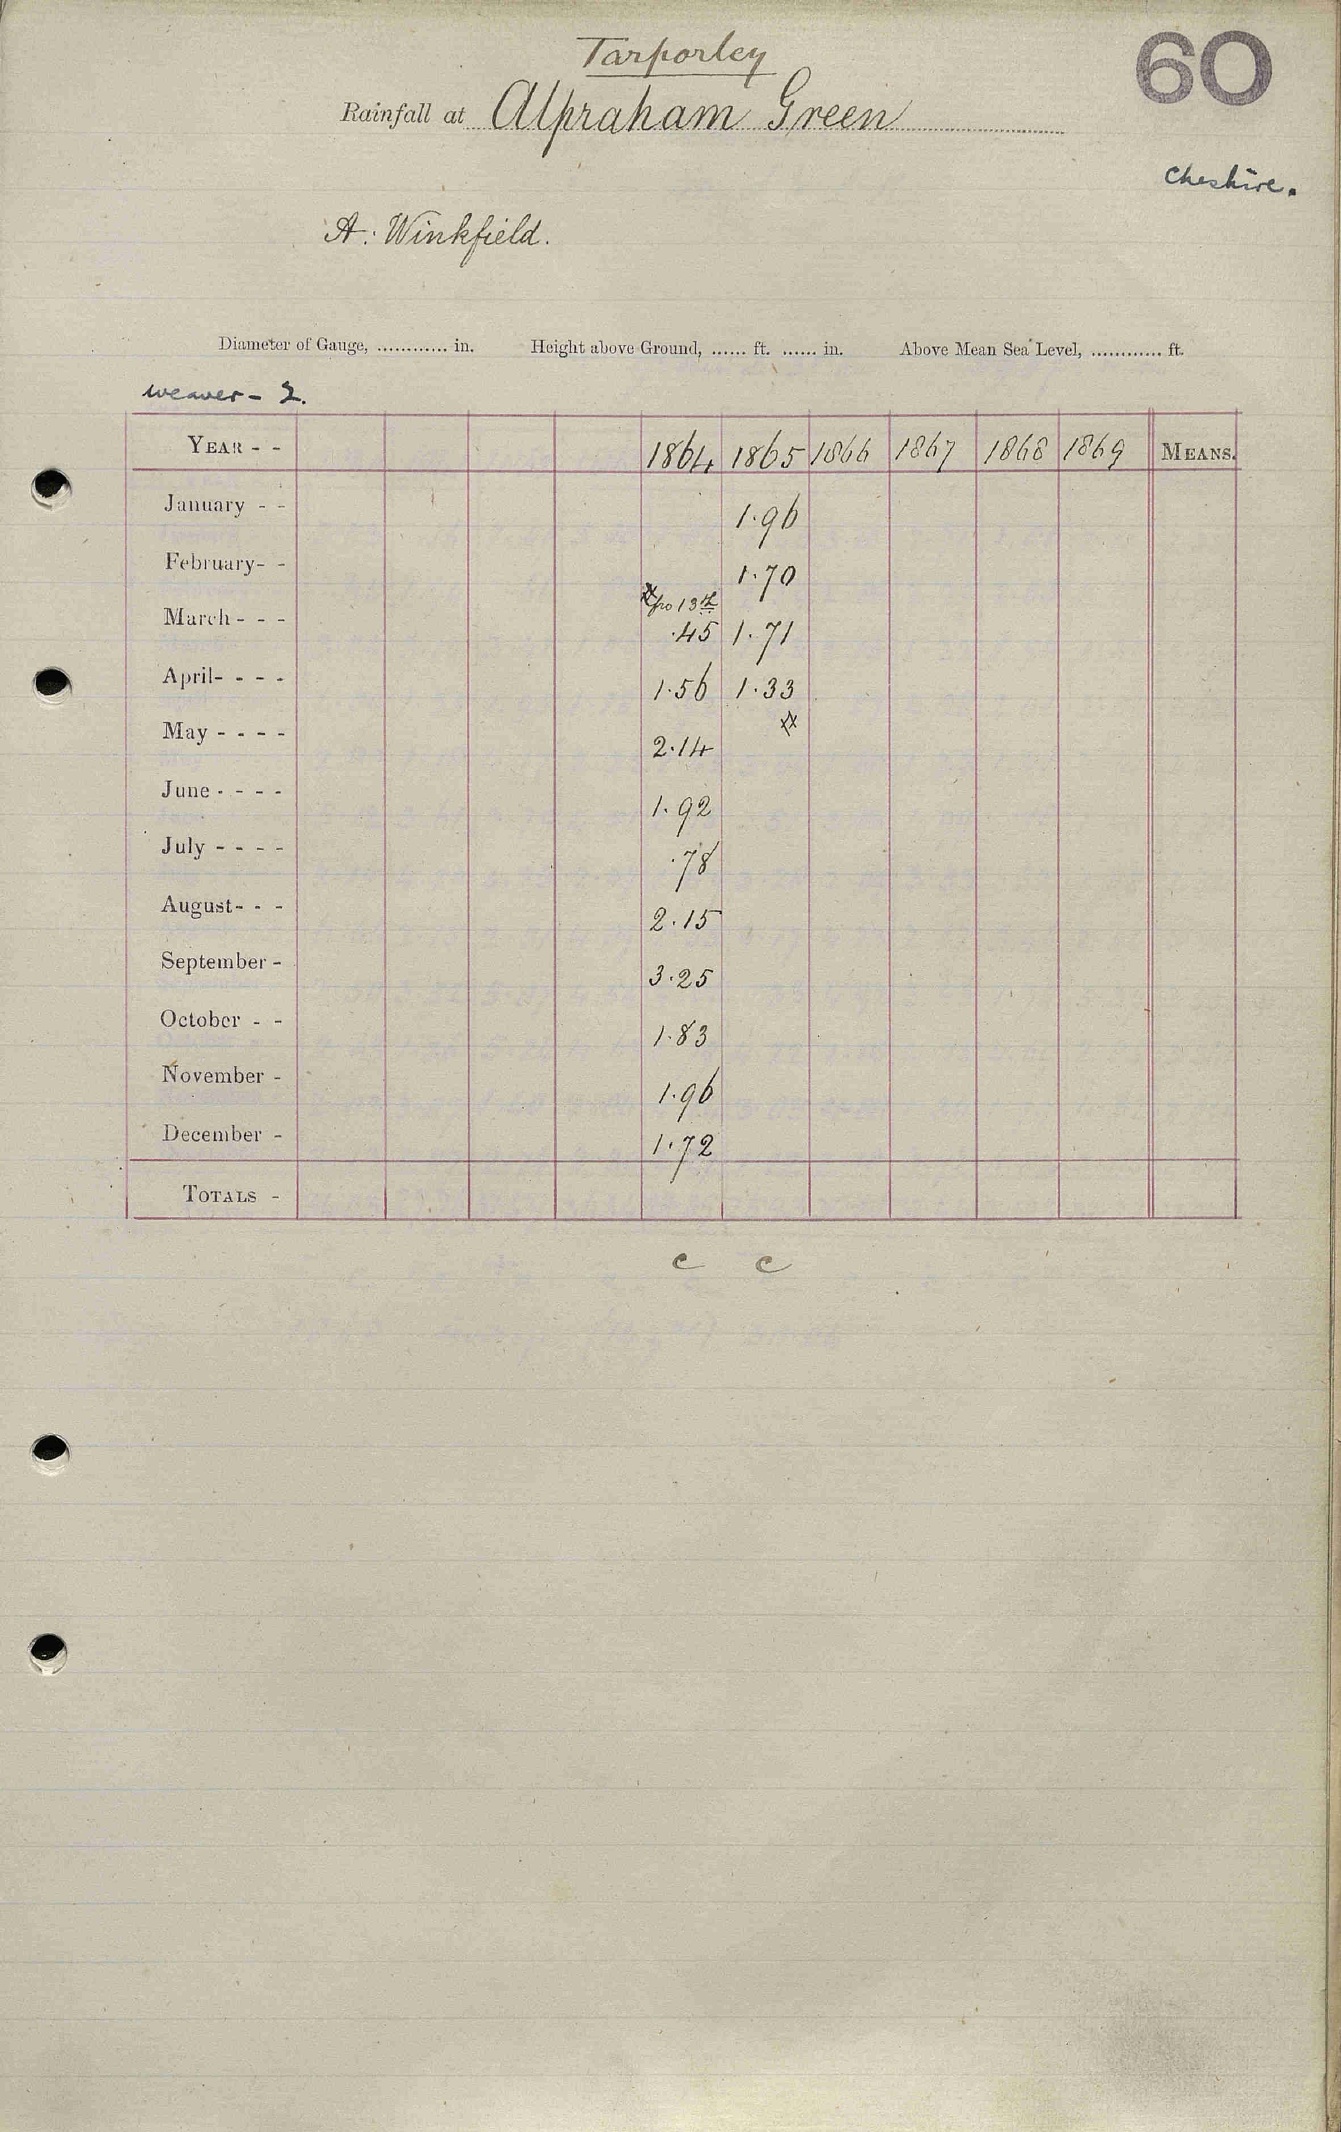 60
Tarporley
Rainfall at Alpraham Green
Cheshire.
A. Winkfield.
Diameter of Gauge, ............ in. Height above Ground, ...... ft. ...... in. Above Mean Sea Level, ............ ft.
Weaver - 2.
YEAR - - 1864 1865 1866 1867 1868 1869 MEANS.
January - - 1.96
February - - 1.70
13th
March - - - .45 1.71
April - - - - 1.56 1.33
May - - - - 2.14
June - - - - 1.92
July - - - - .78
August - - - 2.15
September - 3.25
October - - 1.83
November - 1.96
December - 1.72
TOTALS -
c c